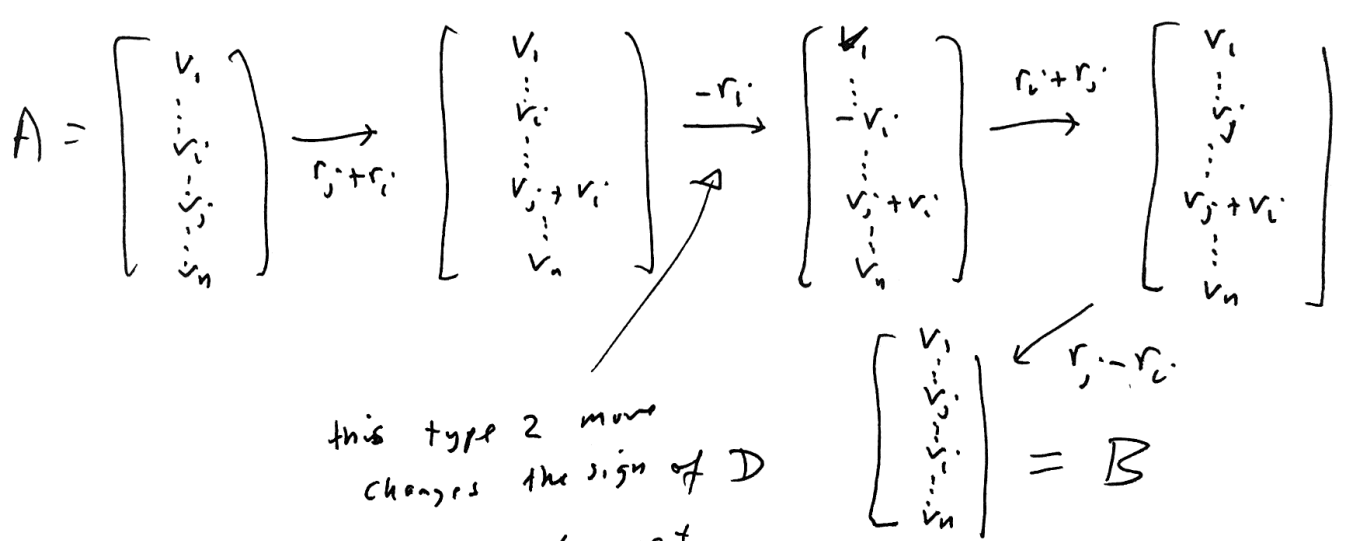 A = [ v₁ ⋮ vᵢ ⋮ vⱼ ⋮ vₙ ] → rⱼ + rᵢ [ v₁ ⋮ vᵢ ⋮ vⱼ + vᵢ ⋮ vₙ ] → -rᵢ [ v₁ ⋮ -vᵢ ⋮ vⱼ + vᵢ ⋮ vₙ ] → rᵢ + rⱼ [ v₁ ⋮ vⱼ ⋮ vⱼ + vᵢ ⋮ vₙ ]
rⱼ - rᵢ
[ v₁ ⋮ vⱼ ⋮ vᵢ ⋮ vₙ ] = B
this type 2 move
changes the sign of D